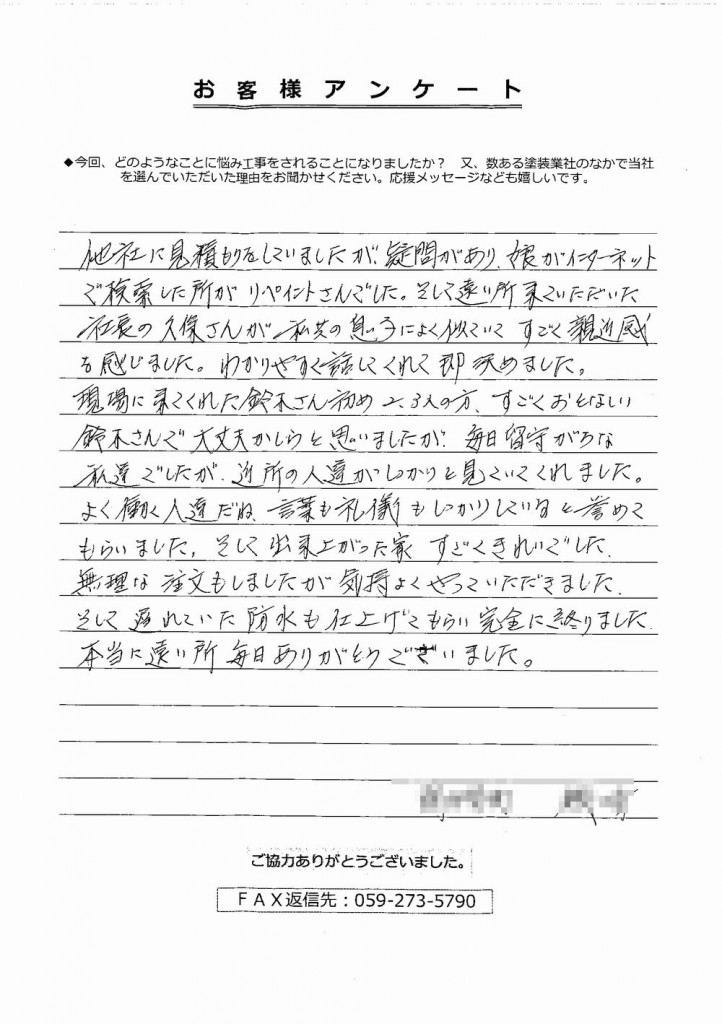 お客様アンケート
◆今回、どのようなことに悩み工事をされることになりましたか?　又、数ある塗装業社のなかで当社
を選んでいただいた理由をお聞かせください。応援メッセージなども嬉しいです。
他社に見積もりをしていましたが、疑問があり、娘がインターネット
で検索した所がリペイントさんでした。そして遠い所来ていただいた
社長の久保さんが私共の息子によく似ていてすごく親近感
を感じました。わかりやすく話してくれて即決めました。
現場に来てくれた鈴木さん初め2、3人の方、すごくおとなしい
鈴木さんで大丈夫かしらと思いましたが、毎日留守がちな
私達でしたが、近所の人達がしっかりと見ていてくれました。
よく働く人達だね、言葉も礼儀もしっかりしていると誉めて
もらいました。そして出来上がった家すごくきれいでした。
無理な注文もしましたが気持よくやっていただきました。
そして遅れていた防水も仕上げてもらい完全に終りました。
本当に遠い所毎日ありがとうございました。
ご協力ありがとうございました。
ＦＡＸ返信先：059-273-5790